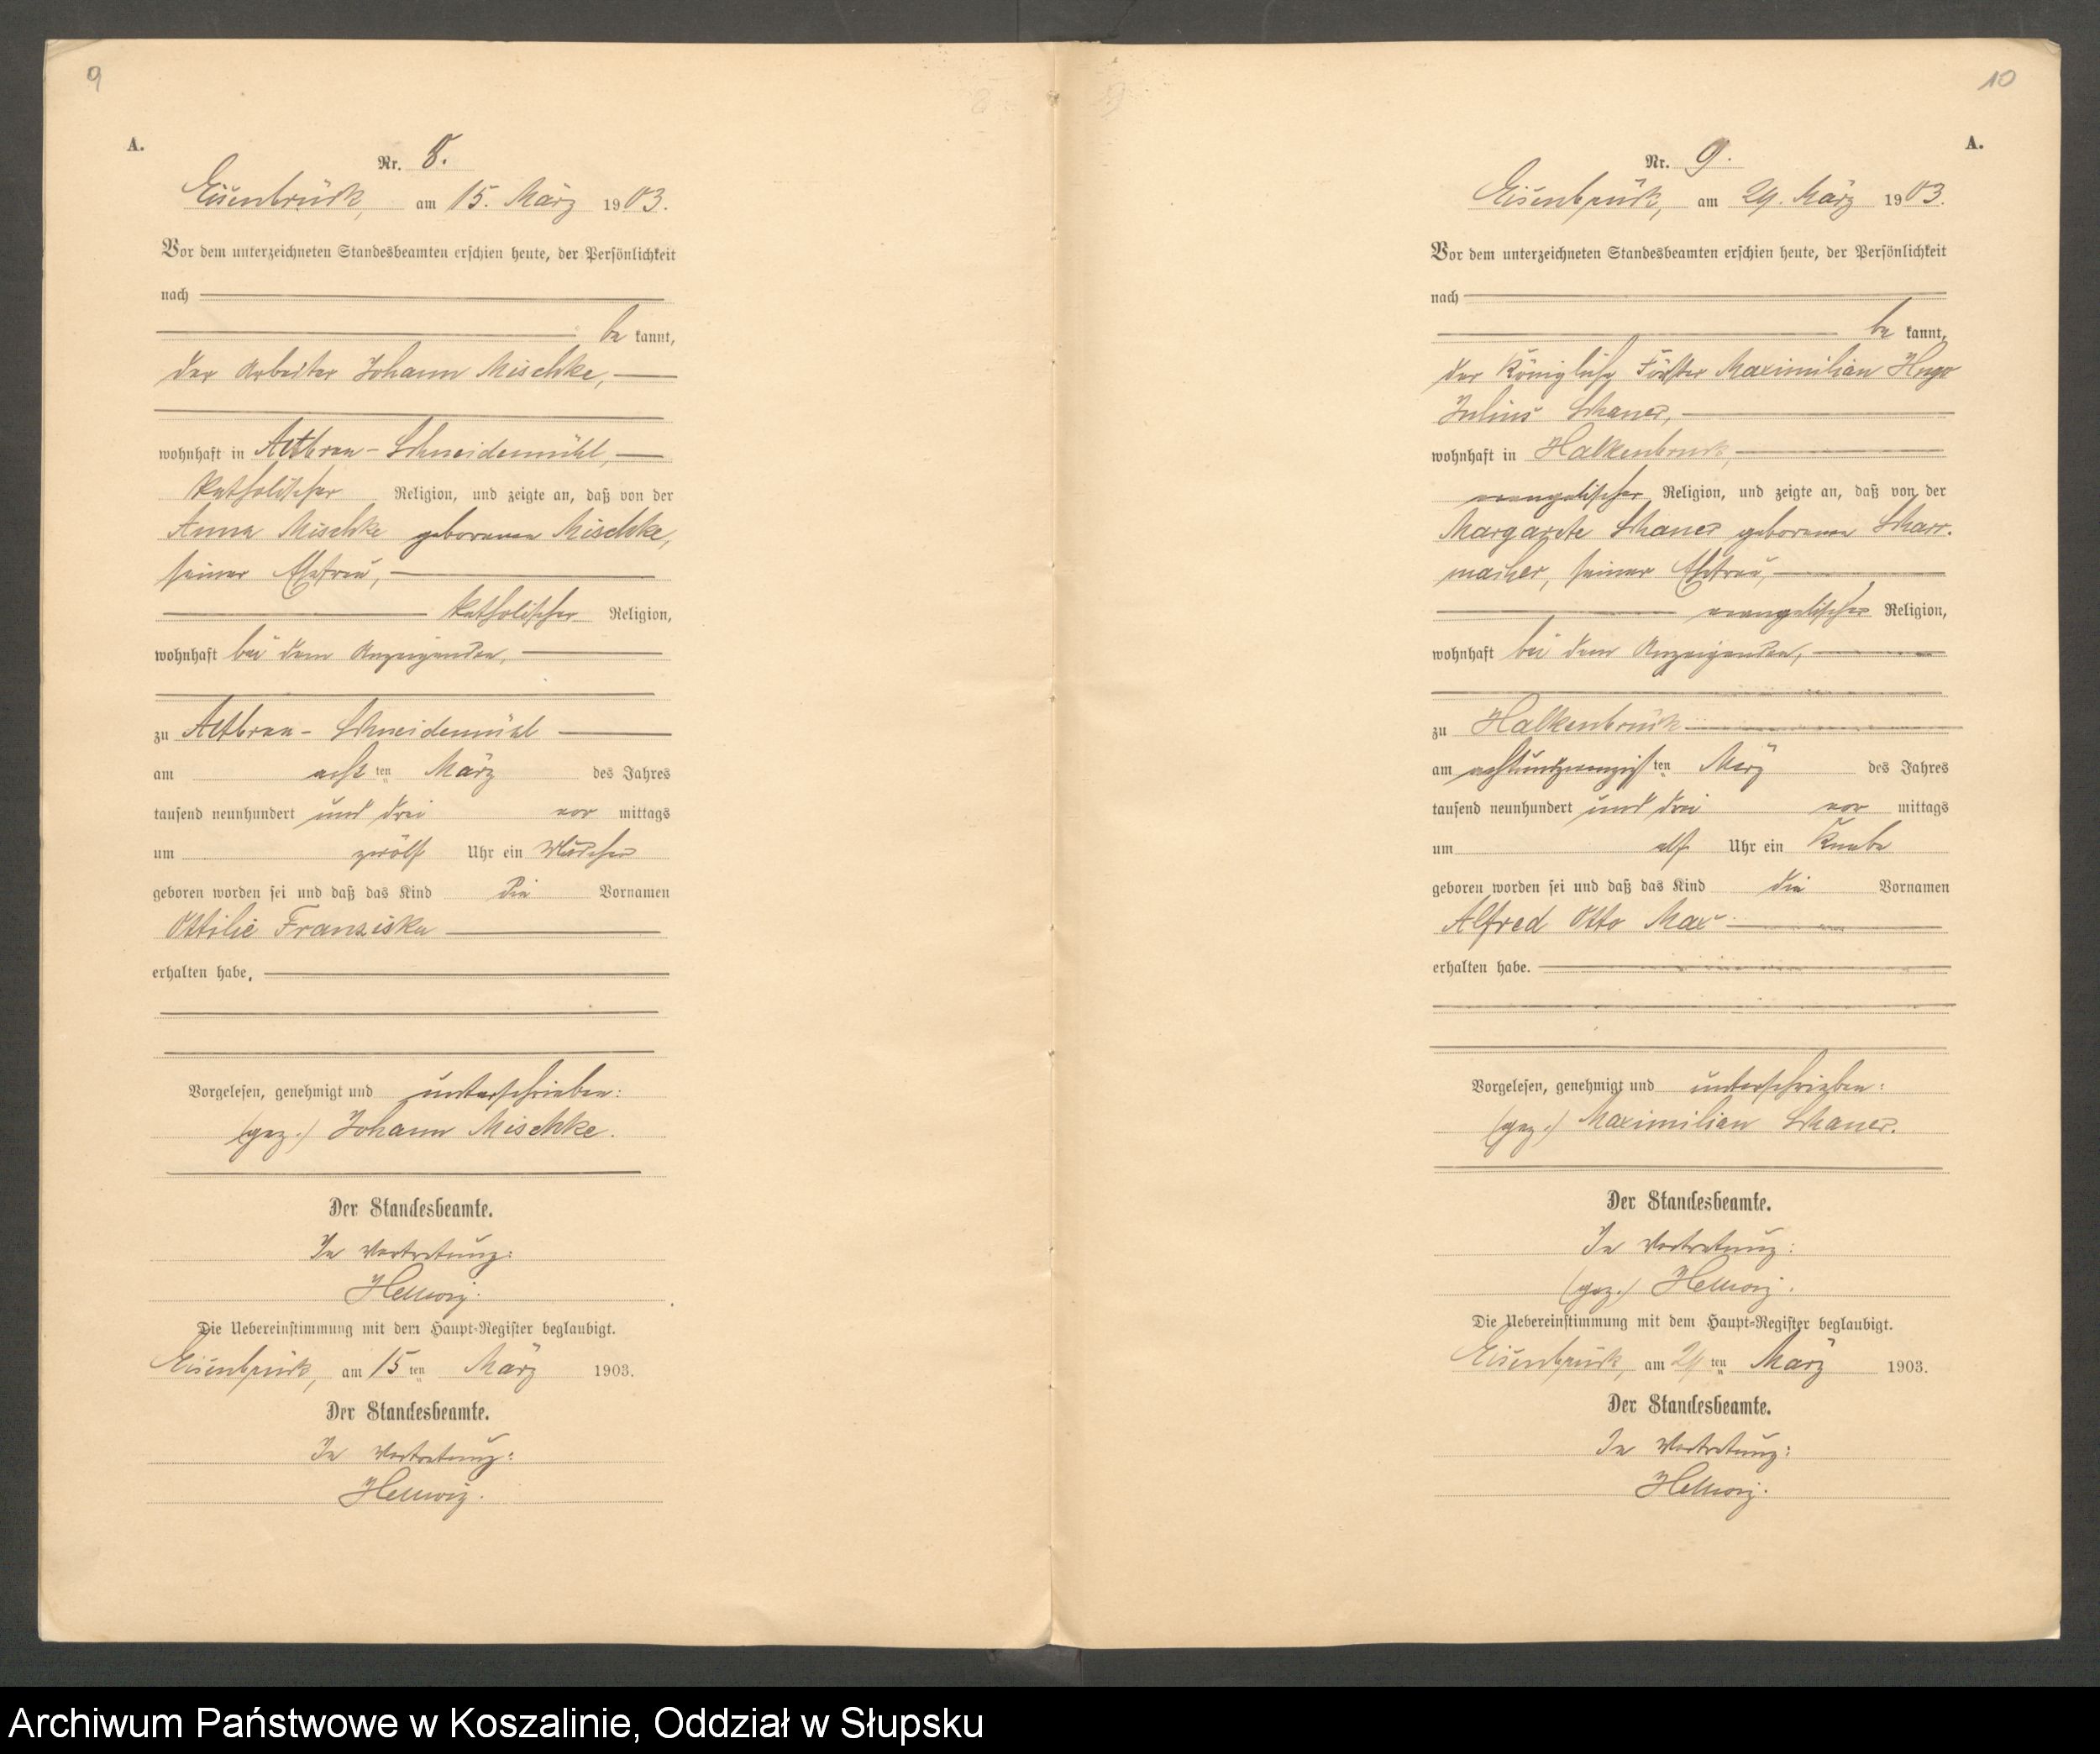 9
A.
Nr. 8.
Eisenbrück, am 15. März 1903.
Vor dem unterzeichneten Standesbeamten erschien heute, der Persönlichkeit
nach
be kannt,
der Arbeiter Johann Mischke,
wohnhaft in Altbrau-Schneidemühl,
katholischer Religion, und zeigte an, daß von der
Anna Mischke geborenen Mischke,
seiner Ehefrau,
katholischer Religion,
wohnhaft bei dem Anzeigenden,
zu Altbrau-Schneidemühl
am acht ten März des Jahres
tausend neunhundert und drei vor mittags
um zwölf Uhr ein Mädchen
geboren worden sei und daß das Kind die Vornamen
Ottilie Franziska
erhalten habe.
Vorgelesen, genehmigt und unterschrieben:
(gez.) Johann Mischke.
Der Standesbeamte.
In Vertretung:
Hellwig.
Die Uebereinstimmung mit dem Haupt-Register beglaubigt.
Eisenbrück, am 15 ten März 1903.
Der Standesbeamte.
In Vertretung:
Hellwig.
10
A.
Nr. 9.
Eisenbrück, am 29. März 1903.
Vor dem unterzeichneten Standesbeamten erschien heute, der Persönlichkeit
nach
be kannt,
der Königliche Förster Maximilian Hugo
Julius Schauer,
wohnhaft in Halkenbruck,
evangelischer Religion, und zeigte an, daß von der
Margarete Schauer geborenen Scharr-
macher, seiner Ehefrau,
evangelischer Religion,
wohnhaft bei dem Anzeigenden,
zu Halkenbrück
am achtundzwanzigs ten März des Jahres
tausend neunhundert und drei vor mittags
um elf Uhr ein Knabe
geboren worden sei und daß das Kind die Vornamen
Alfred Otto Max
erhalten habe.
Vorgelesen, genehmigt und unterschrieben:
(gez.) Maximilian Schauer.
Der Standesbeamte.
In Vertretung:
(gez.) Hellwig.
Die Uebereinstimmung mit dem Haupt-Register beglaubigt.
Eisenbrück, am 29 ten März 1903.
Der Standesbeamte.
In Vertretung:
Hellwig.
Archiwum Państwowe w Koszalinie, Oddział w Słupsku